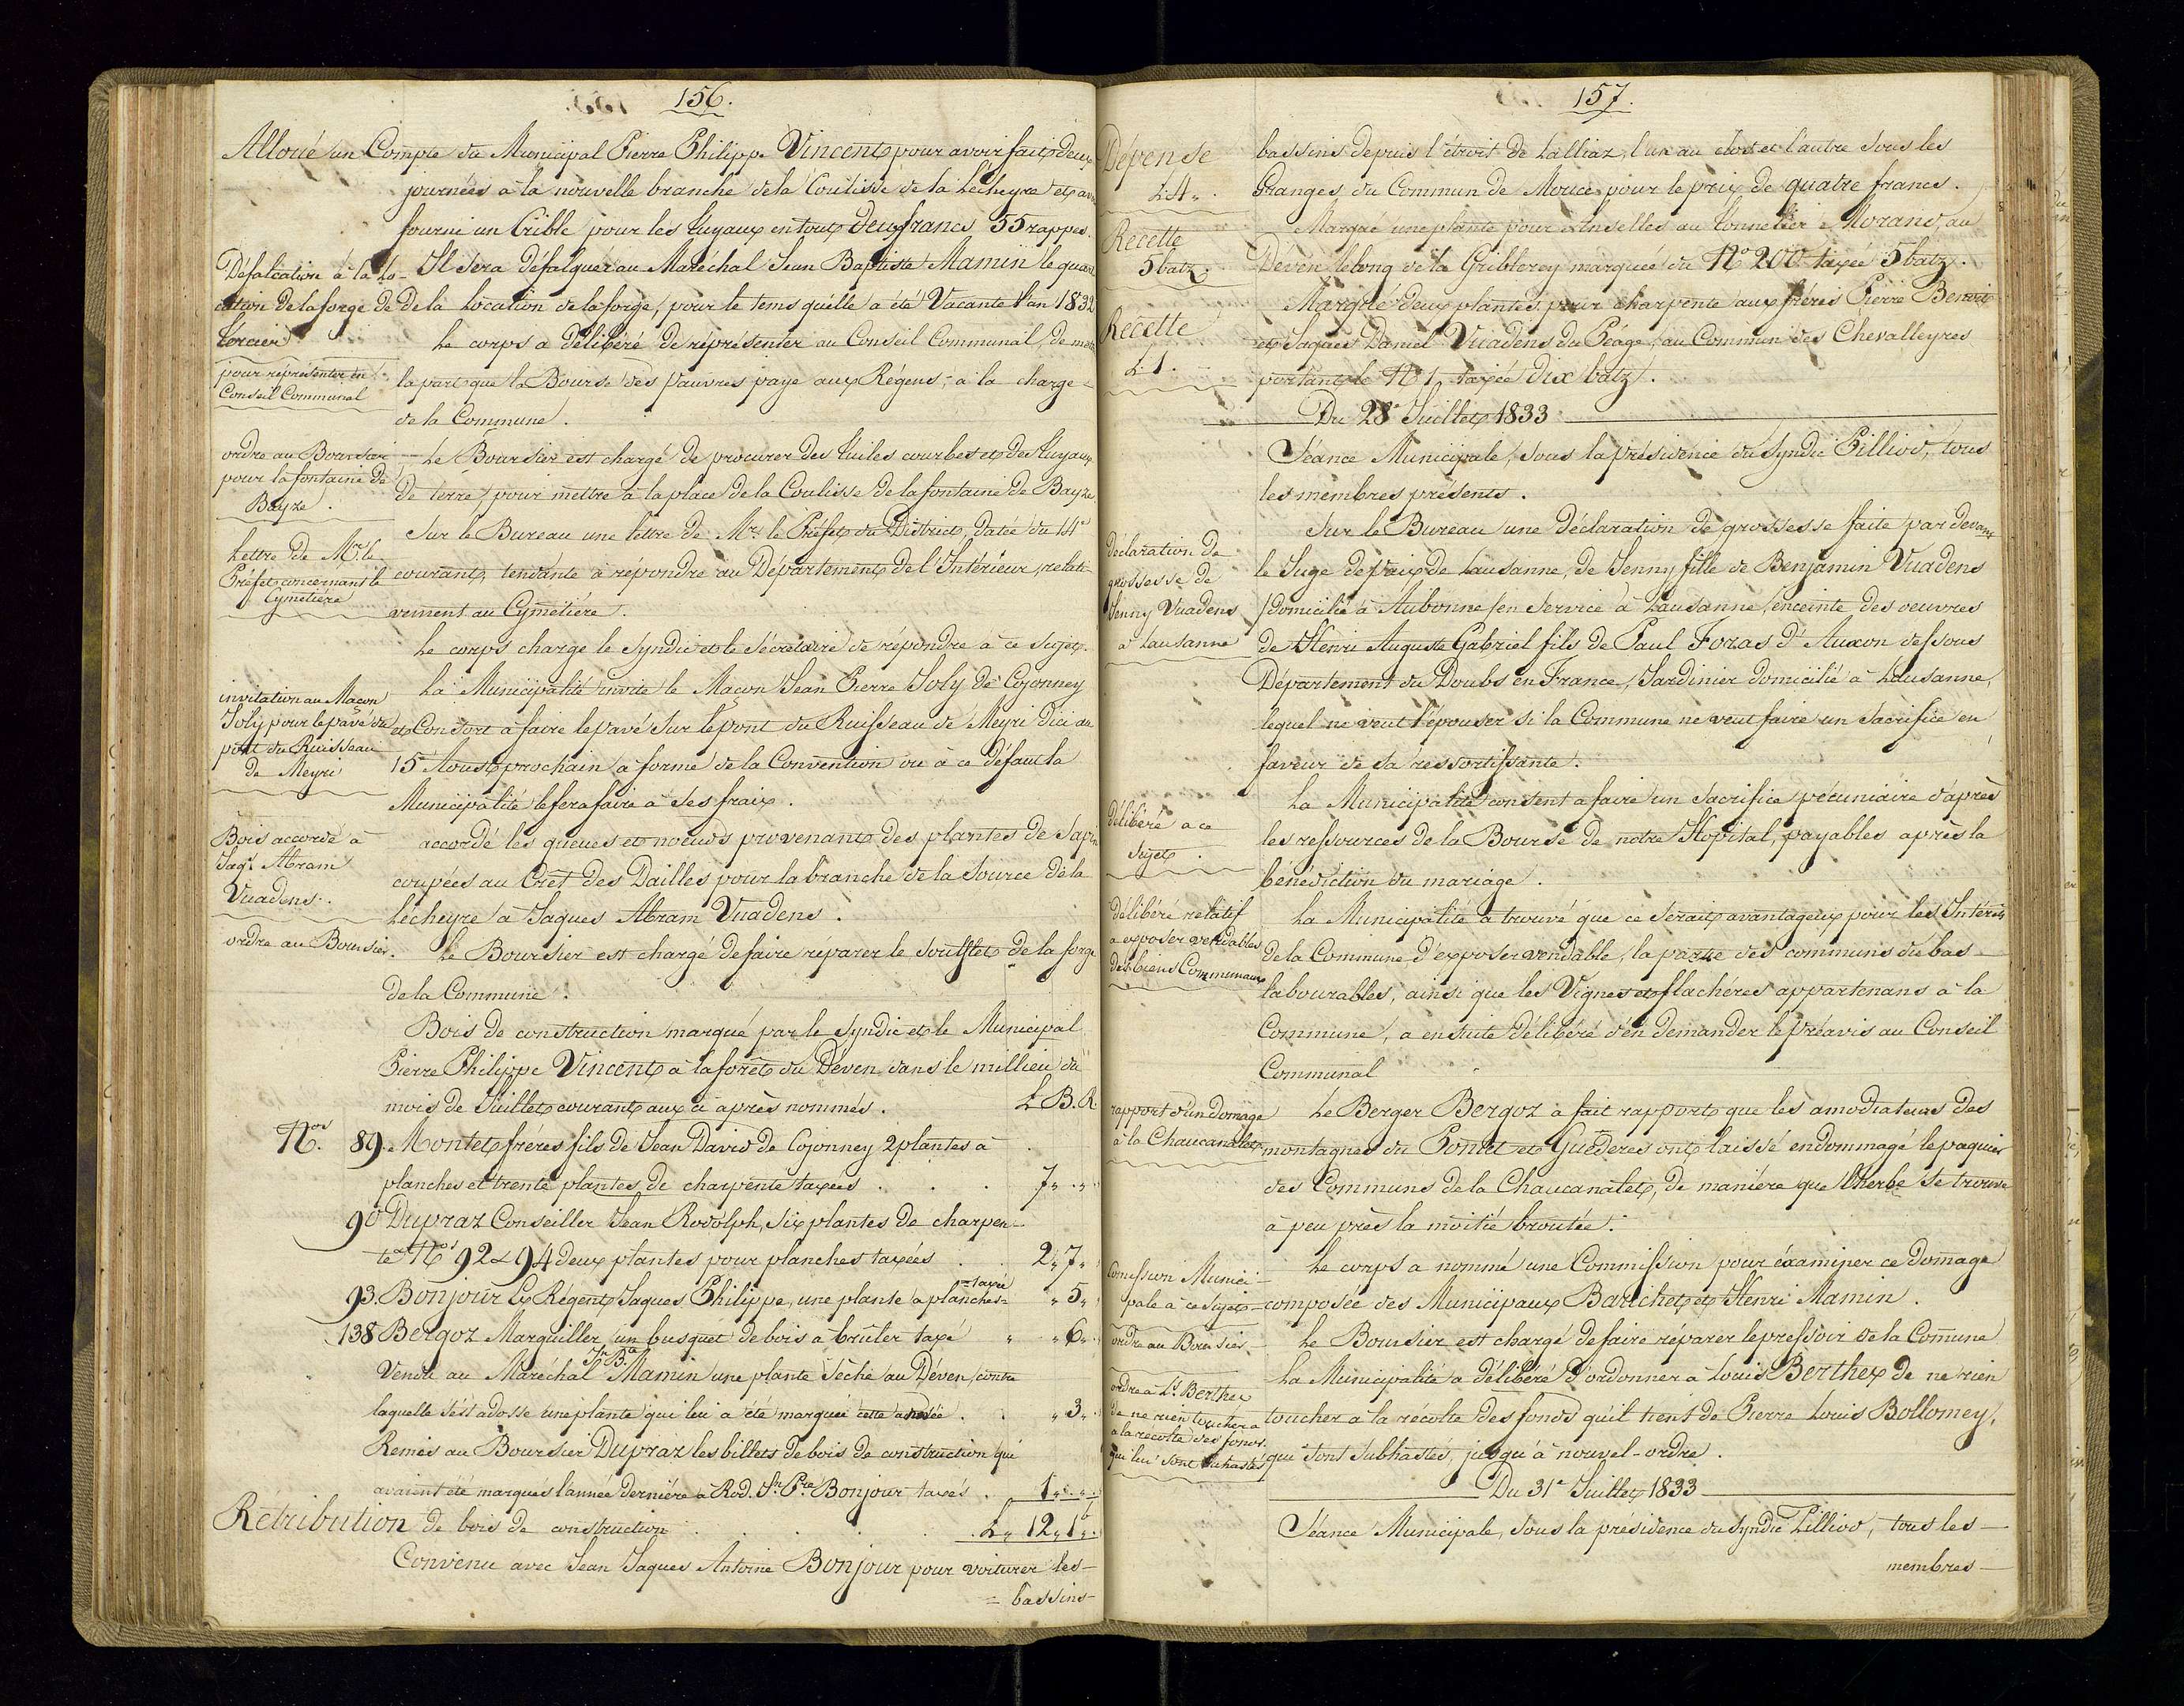 156.
Alloué un Compte du Municipal Pierre Philippe Vincent pour avoir fait deux
journées à la nouvelle branche de la Coulisse de la Lécheyre et avoir
fourni un Crible pour les tuyaux en tout deux francs 55 rappes.
Défalcation à la lo-
cation de la forge de
forcier
Il sera défalquer au Maréchal Jean Baptiste Mamin le quart
de la Location de la forge, pour le tems qu'elle a été Vacante l'an 1832
pour représenter en
Conseil Communal
Le corps a délibéré de réprésenter au Conseil Communal, de mettre
la part que la Bourse des pauvres paye aux Régens, à la charge
de la Commune.
ordre au Boursier
pour la fontaine de
Bayze.
Le Boursier est chargé de procurer des tuiles courbes et des tuyaux
de terre, pour mettre à la place de la Coulisse de la fontaine de Bayze
Lettre de Mr. le
Préfet concernant le
Cymetiére
Sur le Bureau une lettre de Mr. le Préfet du District, Datée du 14e
courant, tendante à répondre au Département de l'Intérieur, relati-
vement au Cymetiére.
Le corps charge le Syndic et le Sécretaire de répondre à ce sujet.
invitation au Maçon
Joly pour le pavé du
pont du Ruisseau
de Meyri
La Municipalité invite le Maçon Jean Pierre Joly de Cojonney
et Consort à faire le pavé sur le pont du Ruisseau de Meyri d'ici au
15e Aoust prochain à forme de la Convention ou à ce défaut la
Municipalité le fera faire à ses fraix.
Bois accordé à
Jaqs. Abram
Vuadens.
accordé les queues et noeuds provenant des plantes de sapin
coupées au Crêt des Dailles pour la branche de la source de la
Lécheyre à Jaques Abram Vuadens.
ordre au Boursier.
Le Boursier est chargé de faire réparer le soufflet de la forge
de la Commune.
Bois de construction marqué par le Syndic et le Municipal
Pierre Philippe Vincent à la forêt du Déven dans le millieu du
mois de Juillet courant aux ci après nommés. L B. R.
Nos. 89. Montet frères fils de Jean David de Cojonney 2 plantes à
planches et trente plantes de charpente taxées . . 7 „ . „
90 Dupraz Conseiller Jean Rodolph, six plantes de charpen-
te Nos 92 & 94 deux plantes pour planches taxées . . 2 „ 7 „
93. Bonjour Ex Régent Jaques Philippe, une plante à planches = taxée „ 5 „
138 Bergoz Marguiller un busquet de bois à brûler taxé „ „ 6 „
Vendu au Maréchal Jn. Bte. Mamin une plante sèche au Déven, contre
laquelle s'est adossé une plante qui lui a été marquée cette année . . „ 3 „
Remis au Boursier Dupraz les billets de bois de construction qui
avaient été marqués l'année dernière à Rod. Jn. Pre. Bonjour taxés . 1 „ „
Rétribution de bois de construction . . . . . L „ 12 „ 1 „
Convenu avec Jean Jaques Antoine Bonjour pour voiturer les
= bassins
157.
Dépense
L. 4 „
bassins depuis l'étroit de Lalliaz, l'un au clos et l'autre sous les
Granges du Commun de Mouce pour le prix de quatre francs.
Recette
5 batz
Marqué une plante pour Anselles au tonnelier Morand, au
Déven le long de la Griblerey marquée du No 200 taxée 5 batz.
Recette
L. 1.
Marqué deux plantes pour charpente aux frères Pierre Benoit
et Jaques Daniel Vuadens du Péage, au Commun des Chevalleyres
portant le No 1 taxée dix batz.
Du 28e Juillet 1833
Séance Municipale, sous la présidence du Syndic Pilliod, tous
les membres présents.
déclaration de
grossesse de
Jenny Vuadens
à Lausanne
Sur le Bureau une déclaration de grossesse faite par devant
le Juge de paix de Lausanne, de Jenny fille de Benjamin Vuadens
(domicilié à Aubonne) en service à Lausanne, enceinte des oeuvres
de Henri Auguste Gabriel fils de Paul Foras d'Auxon dessous
Département du Doubs en France, Jardinier domicilié à Lausanne,
lequel ne veut l'épouser si la Commune ne veut faire un sacrifice en
faveur de sa ressortissante.
délibéré à ce
sujet.
La Municipalité consent à faire un sacrifice pécuniaire d'après
les ressources de la Bourse de notre Hopital, payables après la
bénédiction du mariage.
délibéré relatif
à exposer vendables
des biens Communaux
La Municipalité a trouvé que ce serait avantageux pour les Intérêts
de la Commune d'exposer vendable, la partie des communs du bas
labourables, ainsi que les Vignes et flachères appartenans à la
Commune, a ensuite délibéré d'en demander le préavis au Conseil
Communal
rapport d'un domage
à la Chaucanalet
Le Berger Bergoz a fait rapport que les amodiateurs des
montagnes du Pontet et Guéderes ont laissé endommagé le paquier
des Communs de la Chaucanalet, de maniére que l'herbe se trouve
à peu près la moitié broutée.
Comission Munici-
pale à ce sujet
Le corps a nommé une Commission pour éxaminer ce domage
composée des Municipaux Barichet et Henri Mamin.
ordre au Boursier
Le Boursier est chargé de faire réparer le pressoir de la Comune
ordre à Ls. Berthex
de ne rien toucher
à la récolte des fonds
qui lui sont subhastés
La Municipalité a délibéré d'ordonner à Louis Berthex de ne rien
toucher à la récolte des fonds qu'il tient de Pierre Louis Bollomey,
qui sont subhastés, jusqu'à nouvel-ordre.
Du 31e Juillet 1833
Séance Municipale, sous la présidence du Syndic Pilliod, tous les
membres